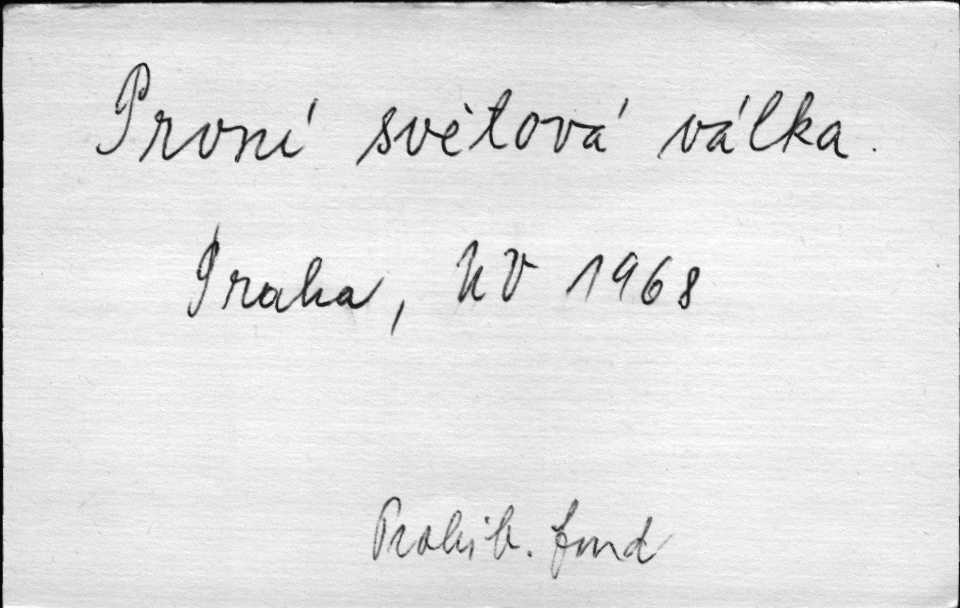 První světová válka.
Praha, NV 1968
Prohib. fond